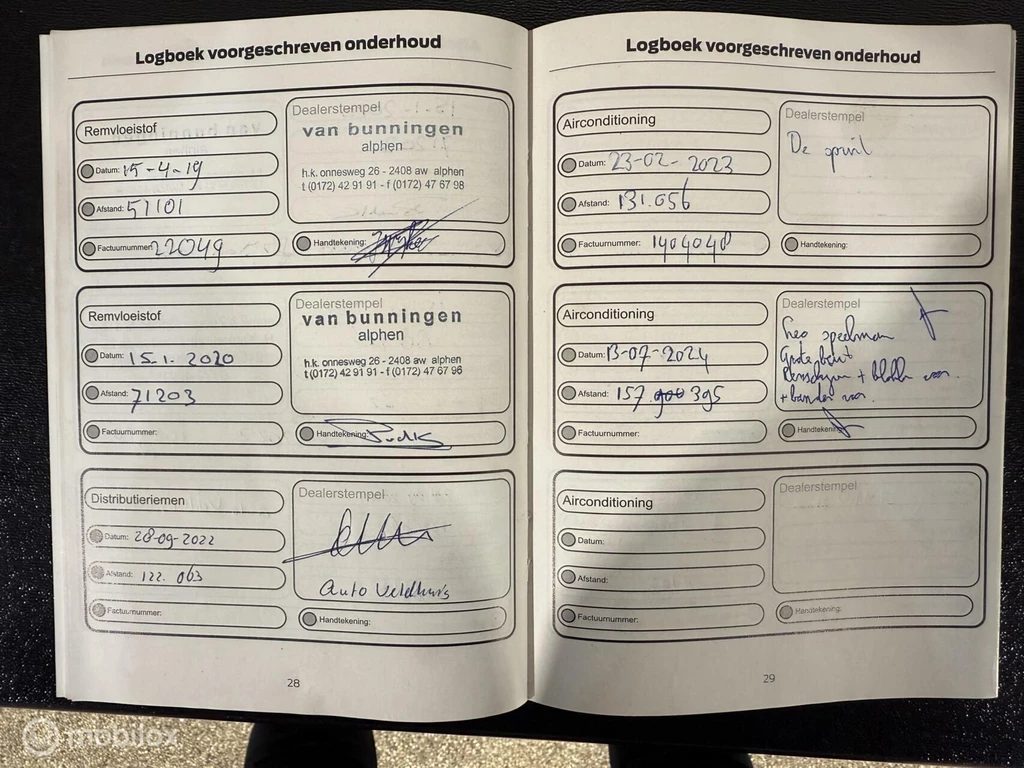 Logboek voorgeschreven onderhoud
Remvloeistof
Datum: 15-4-19
Afstand: 51101
Factuurnummer: 22049
Dealerstempel
van bunningen
alphen
h.k. onnesweg 26 - 2408 aw alphen
t (0172) 42 91 91 - f (0172) 47 67 98
Handtekening:
Remvloeistof
Datum: 15.1.2020
Afstand: 71203
Factuurnummer:
Dealerstempel
van bunningen
alphen
h.k. onnesweg 26 - 2408 aw alphen
t (0172) 42 91 91 - f (0172) 47 67 96
Handtekening:
Distributieriemen
Datum: 28-09-2022
Afstand: 122.063
Factuurnummer:
Dealerstempel
Auto Veldhuis
Handtekening:
28
Logboek voorgeschreven onderhoud
Airconditioning
Datum: 23-02-2023
Afstand: 131.056
Factuurnummer: 1404048
Dealerstempel
De
Handtekening:
Airconditioning
Datum: 13-07-2024
Afstand: 157.900 395
Factuurnummer:
Dealerstempel
speelman
Grote beurt
+ blokken voor
+ banden voor.
Handtekening:
Airconditioning
Datum:
Afstand:
Factuurnummer:
Dealerstempel
Handtekening:
29
mobilox